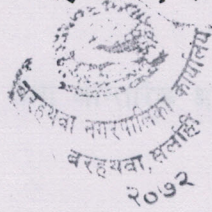 बरहथवा नगरपालिका कार्यालय
बरहथवा, सर्लाही
२०७२